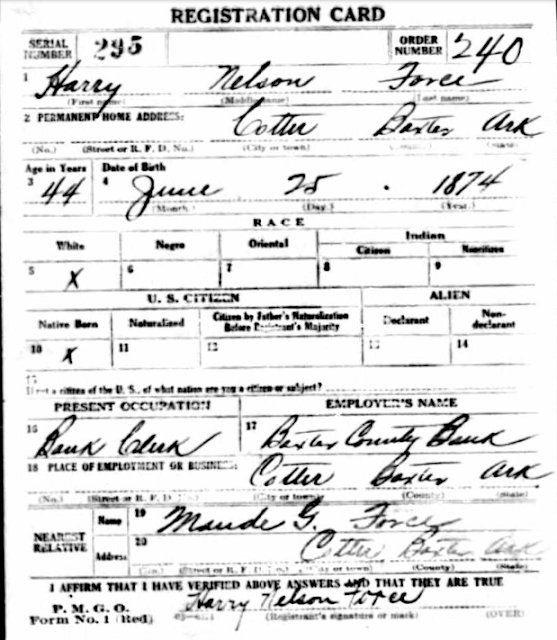 REGISTRATION CARD
SERIAL NUMBER 295 ORDER NUMBER 240
1 Harry Nelson Force
(First name) (Middle name) (Last name)
2 PERMANENT HOME ADDRESS: Cotter Baxter Ark
(No.) (Street or R. F. D. No.) (City or town) (County) (State)
Age in Years Date of Birth
3 44 4 June 25 . 1874
(Month.) (Day.) (Year.)
RACE
White Negro Oriental Indian
Citizen Noncitizen
5 X 6 7 8 9
U. S. CITIZEN ALIEN
Native Born Naturalized Citizen by Father's Naturalization Before Registrant's Majority Declarant Non-declarant
10 X 11 12 13 14
15
If not a citizen of the U. S., of what nation are you a citizen or subject?
PRESENT OCCUPATION EMPLOYER'S NAME
16 Bank Clerk 17 Baxter County Bank
18 PLACE OF EMPLOYMENT OR BUSINESS: Cotter Baxter Ark
(No.) (Street or R. F. D. No.) (City or town) (County) (State)
NEAREST RELATIVE Name 19 Maude G. Force
Address 20 Cotter Baxter Ark
(No.) (Street or R. F. D. No.) (City or town) (County) (State)
I AFFIRM THAT I HAVE VERIFIED ABOVE ANSWERS AND THAT THEY ARE TRUE
P. M. G. O. Harry Nelson Force
Form No. 1 (Red) (Registrant's signature or mark) (OVER)